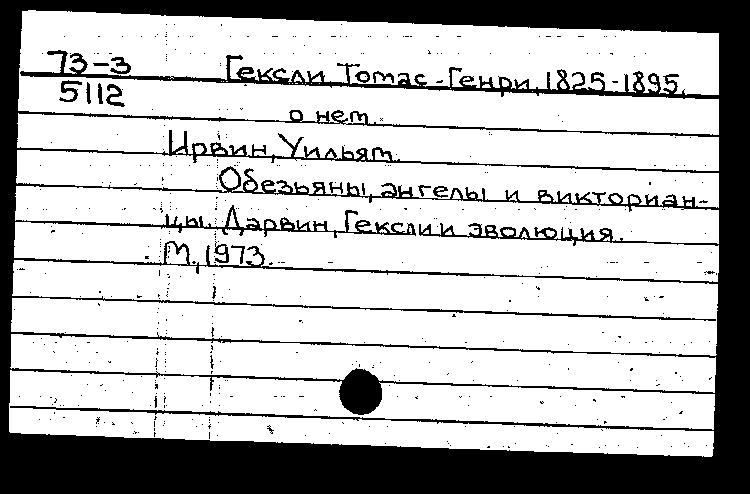 73-3 Гексли, Томас-Генри, 1825-1895.
5112
о нем.
Ирвин, Уильям.
Обезьяны, ангелы и викториан-
цы. Дарвин, Гексли и эволюция.
М., 1973.